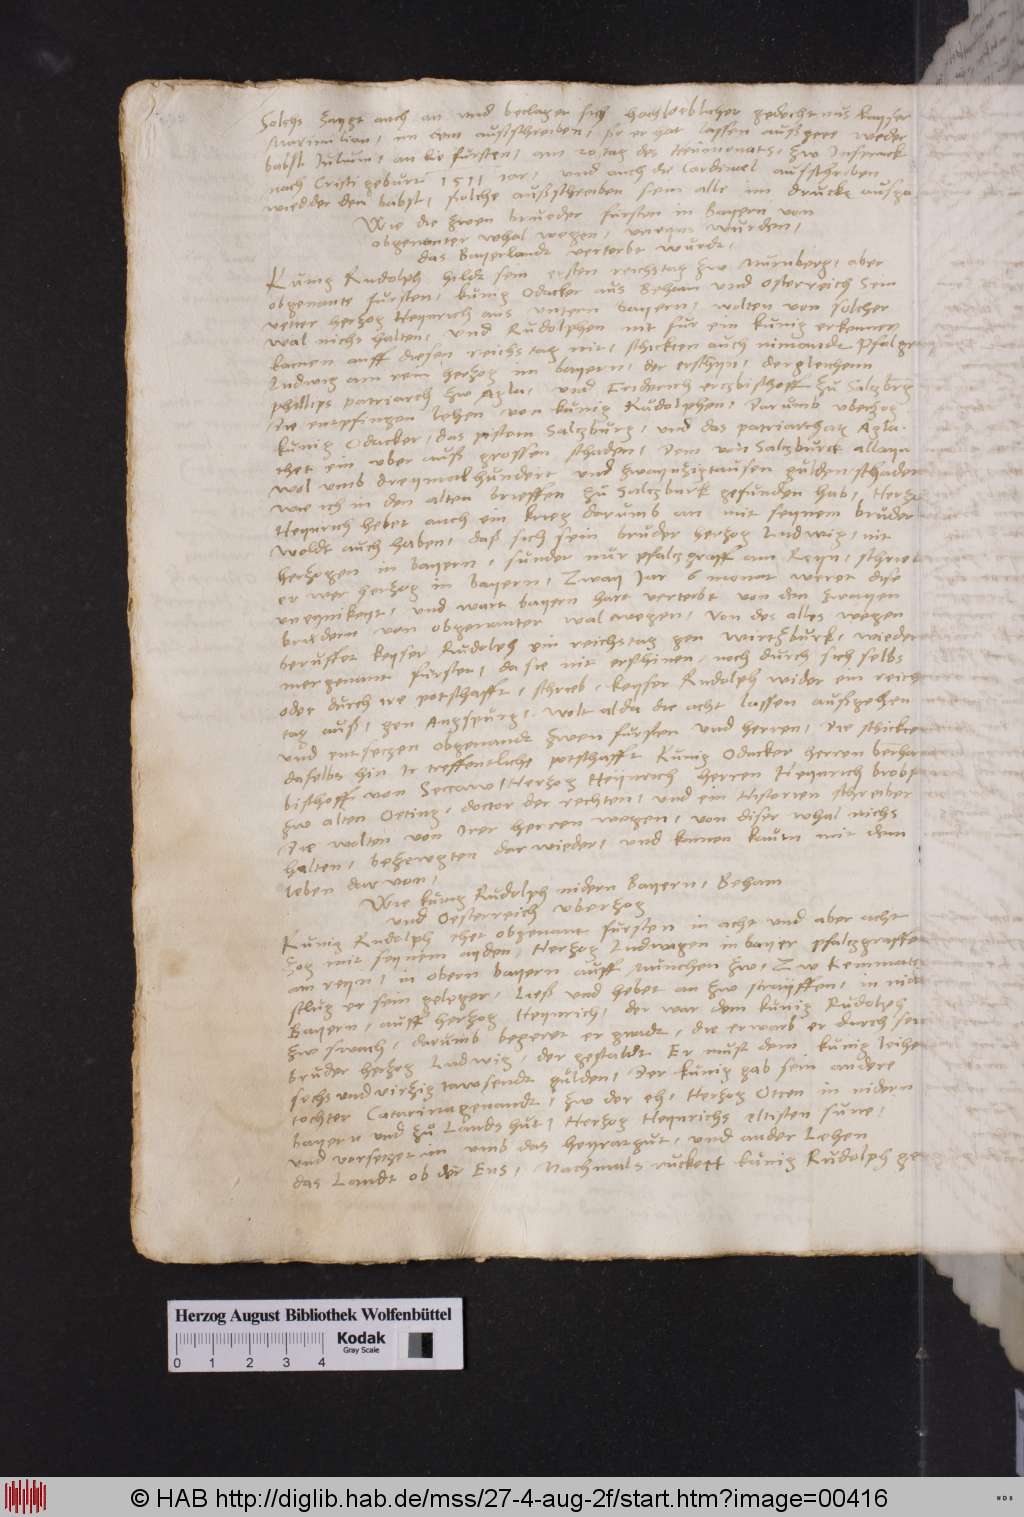 Solchs zaygt auch an und beclaget sich hochloeblicher gedechtnus kayser
Maximilian, im dem außschreiben, so er hat lassen außgeen weder
babst Julium, an die fursten, am 20 tag des Heumonats, zw Insprack
nach Cristi geburt 1511 iar, und auch die Cardinel aufschreiben
wiedder den babst, solche außschreiben sein alle im druck außga
Wie die zwen brueder fursten in Bayern von
obgenanter whal wegen, unains wurden,
das Bayerlandt verterbt wurdt,
Kunig Rudolph hildt sein ersten reichstag zw Nurnberg, aber
obgenante fursten, kunig Odacker aus Beham und Osterreich sein
vetter herzog Heynrich aus untern Bayern, wolten von solcher
wal nichs halten, und Rudolphen nit fur ein kunig erkennen
kamen auff diesen reichs tag nit, schickten auch nimandt Pfalgra
Ludwig am rein herzog im bayern, der erschyn, dergleichenn
Phillips patriarch zw Agla, und Friderich erczbischoff zu Salczburg
Die entpfingen lehen von kunig Rudolphen, Darumb uberzog
kunig Odacker, das pistum Salczburg, und das patriarchat Agla.
thet ein uber auß grossen schaden, dem von Salczburck allayn
wol umb dreymalhundert und zwaynzigtausen gulden schaden
wie ich in den alten brieffen zu Salczburk gefunden hab, Herzo
Heynrich hebet auch ein krieg darumb an mit seynem bruder
woldt auch haben, daß sich sein bruder herzog Ludwig, nit
herzogen in bayern, sunder nur pfalczgraff am Reyn, schrieb
er wer herzog in bayern, Zway Jar 6 monat weret dise
uneynikeyt, und wart bayern hart verterbt von den zwayen
brudern von obgenanter wal wegen, von des alles wegen
beruffet keyser Rudolph ein reichstag gen wirtzburk, wieder
mergenant fursten, da sie nit erschinen, noch durch sich selbs
oder durch ire potschafft, schrieb, keyser Rudolph wider ein reich
tag auß, gen Augspurg, wolt alda die acht lassen außgehen
und entseczen obgenandt zwen fursten und herren, die schickten
daselbs hin Ir treffentliche potschafft Kunig Odacker herren berhar
bischoff von Seccaw, Herzog Heynrich herren Heynrich brobst
zw alten Oeting, doctor der rechten, und ein Historien schreiber
Die wolten von Irer herren wegen, von diser whal nichs
halten, bezewgten darwieder, und kamen kaum mit dem
leben darvon,
Wie kunig Rudolph nidern Bayern, Beham
und Oesterreich uberzog
Kunig Rudolph thet obgenant fursten in acht und aber acht
zog mit seynem ayden, Herzog Ludwigen in bayer pfalczgraffe
am reyn, in obern bayern auff Munchen zw, Zw Kemmat
schlug er sein geleger, Ließ und hebet an zw straiffen, in nid
Bayern, auff herzog Heynrich, der war dem kunig Rudolph
zw swach, darumb begeret er gnadt, die erwarb er durch sein
bruder herzog Ludwig, der gestaldt Er must dem kunig leihe
sechs und virzig tawsendt gulden, Der kunig gab sein andere
tochter Catarina genandt, zw der eh, Herzog Otten in nidern
bayern und zu Landshut, Herzog Heynrichs eltisten sune,
und verseczet im umb das heyratgut, und ander Lehen
das Landt ob der Ens, Nachmals ruckett kunig Rudolph ge
Herzog August Bibliothek Wolfenbüttel
Kodak
Gray Scale
0 1 2 3 4
© HAB http://diglib.hab.de/mss/27-4-aug-2f/start.htm?image=00416